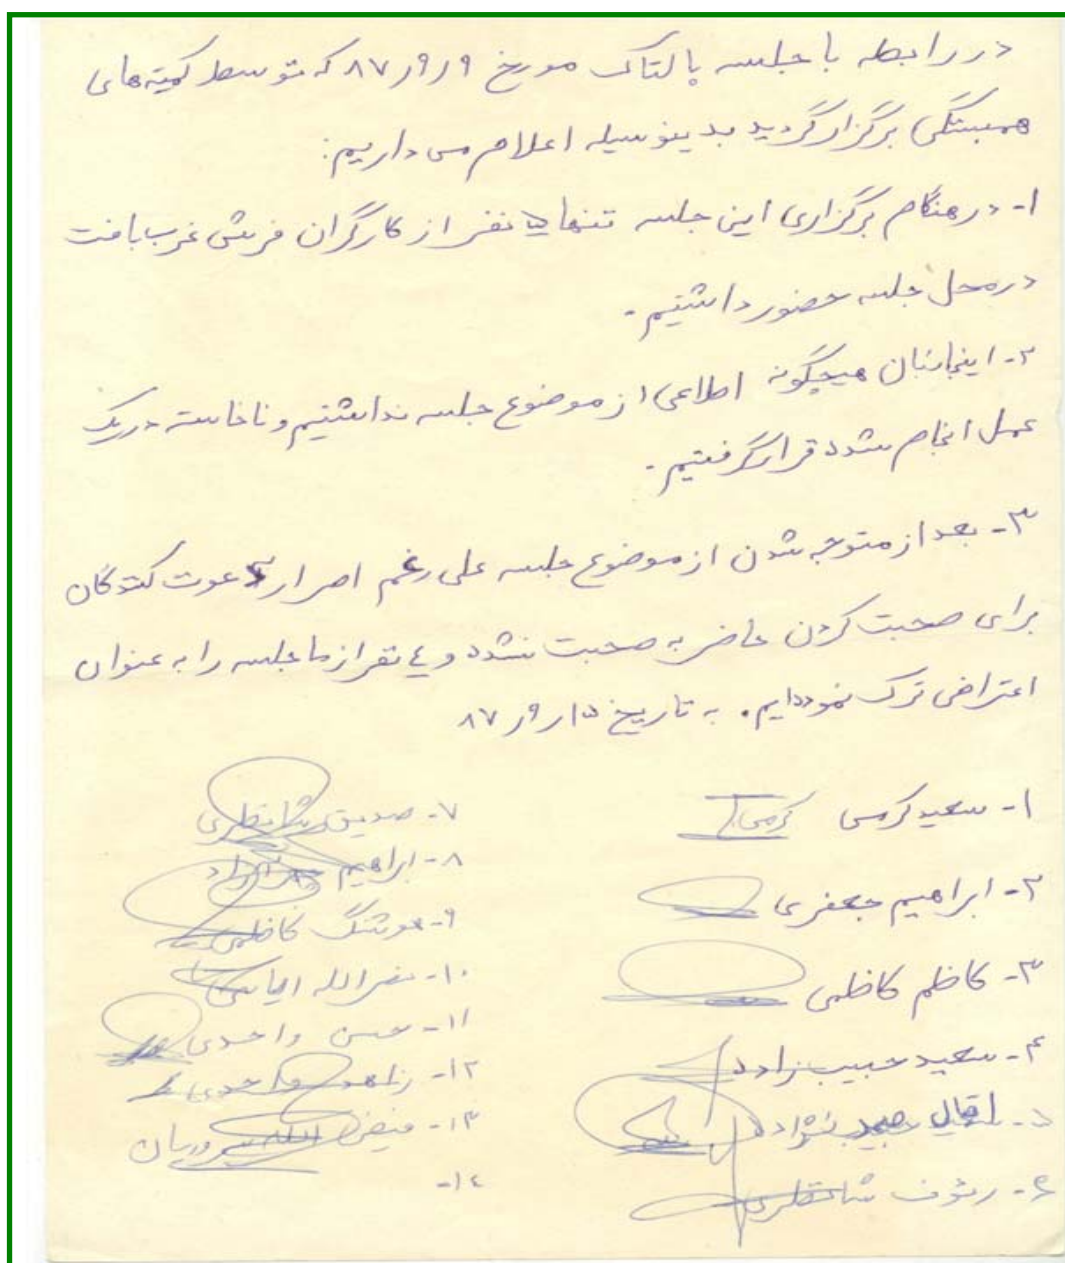 در رابطه با جلسه پالتاک مورخ ۸۷٫۹٫۹ که توسط کمیته های
همبستگی برگزار گردید بدینوسیله اعلام می داریم:
۱- در هنگام برگزاری این جلسه تنها ۵ نفر از کارگران فرش غرب بافت
در محل جلسه حضور داشتیم.
۲- اینجانبان هیچگونه اطلاعی از موضوع جلسه نداشتیم و ناخاسته در یک
عمل انجام شده قرار گرفتیم.
۳- بعد از متوجه شدن از موضوع جلسه علی رغم اصرار دعوت کنندگان
برای صحبت کردن حاضر به صحبت نشده و ۴ نفر از ما جلسه را به عنوان
اعتراض ترک نموده ایم. به تاریخ ۸۷٫۹٫۱۵
۱- سعید کرمی کرمی
۲- ابراهیم جعفری
۳- کاظم کاظمی
۴- سعید حبیب زاده
۵- اقبال
۶- رئوف شانظری
۷- صدیق شانظری
۸- ابراهیم
۹- هوشنگ کاظمی
۱۰- نصرالله الیاسی
۱۱- حسن واحدی
۱۲- زاهد واحدی
۱۳- فیض الله سروریان
۱۴-